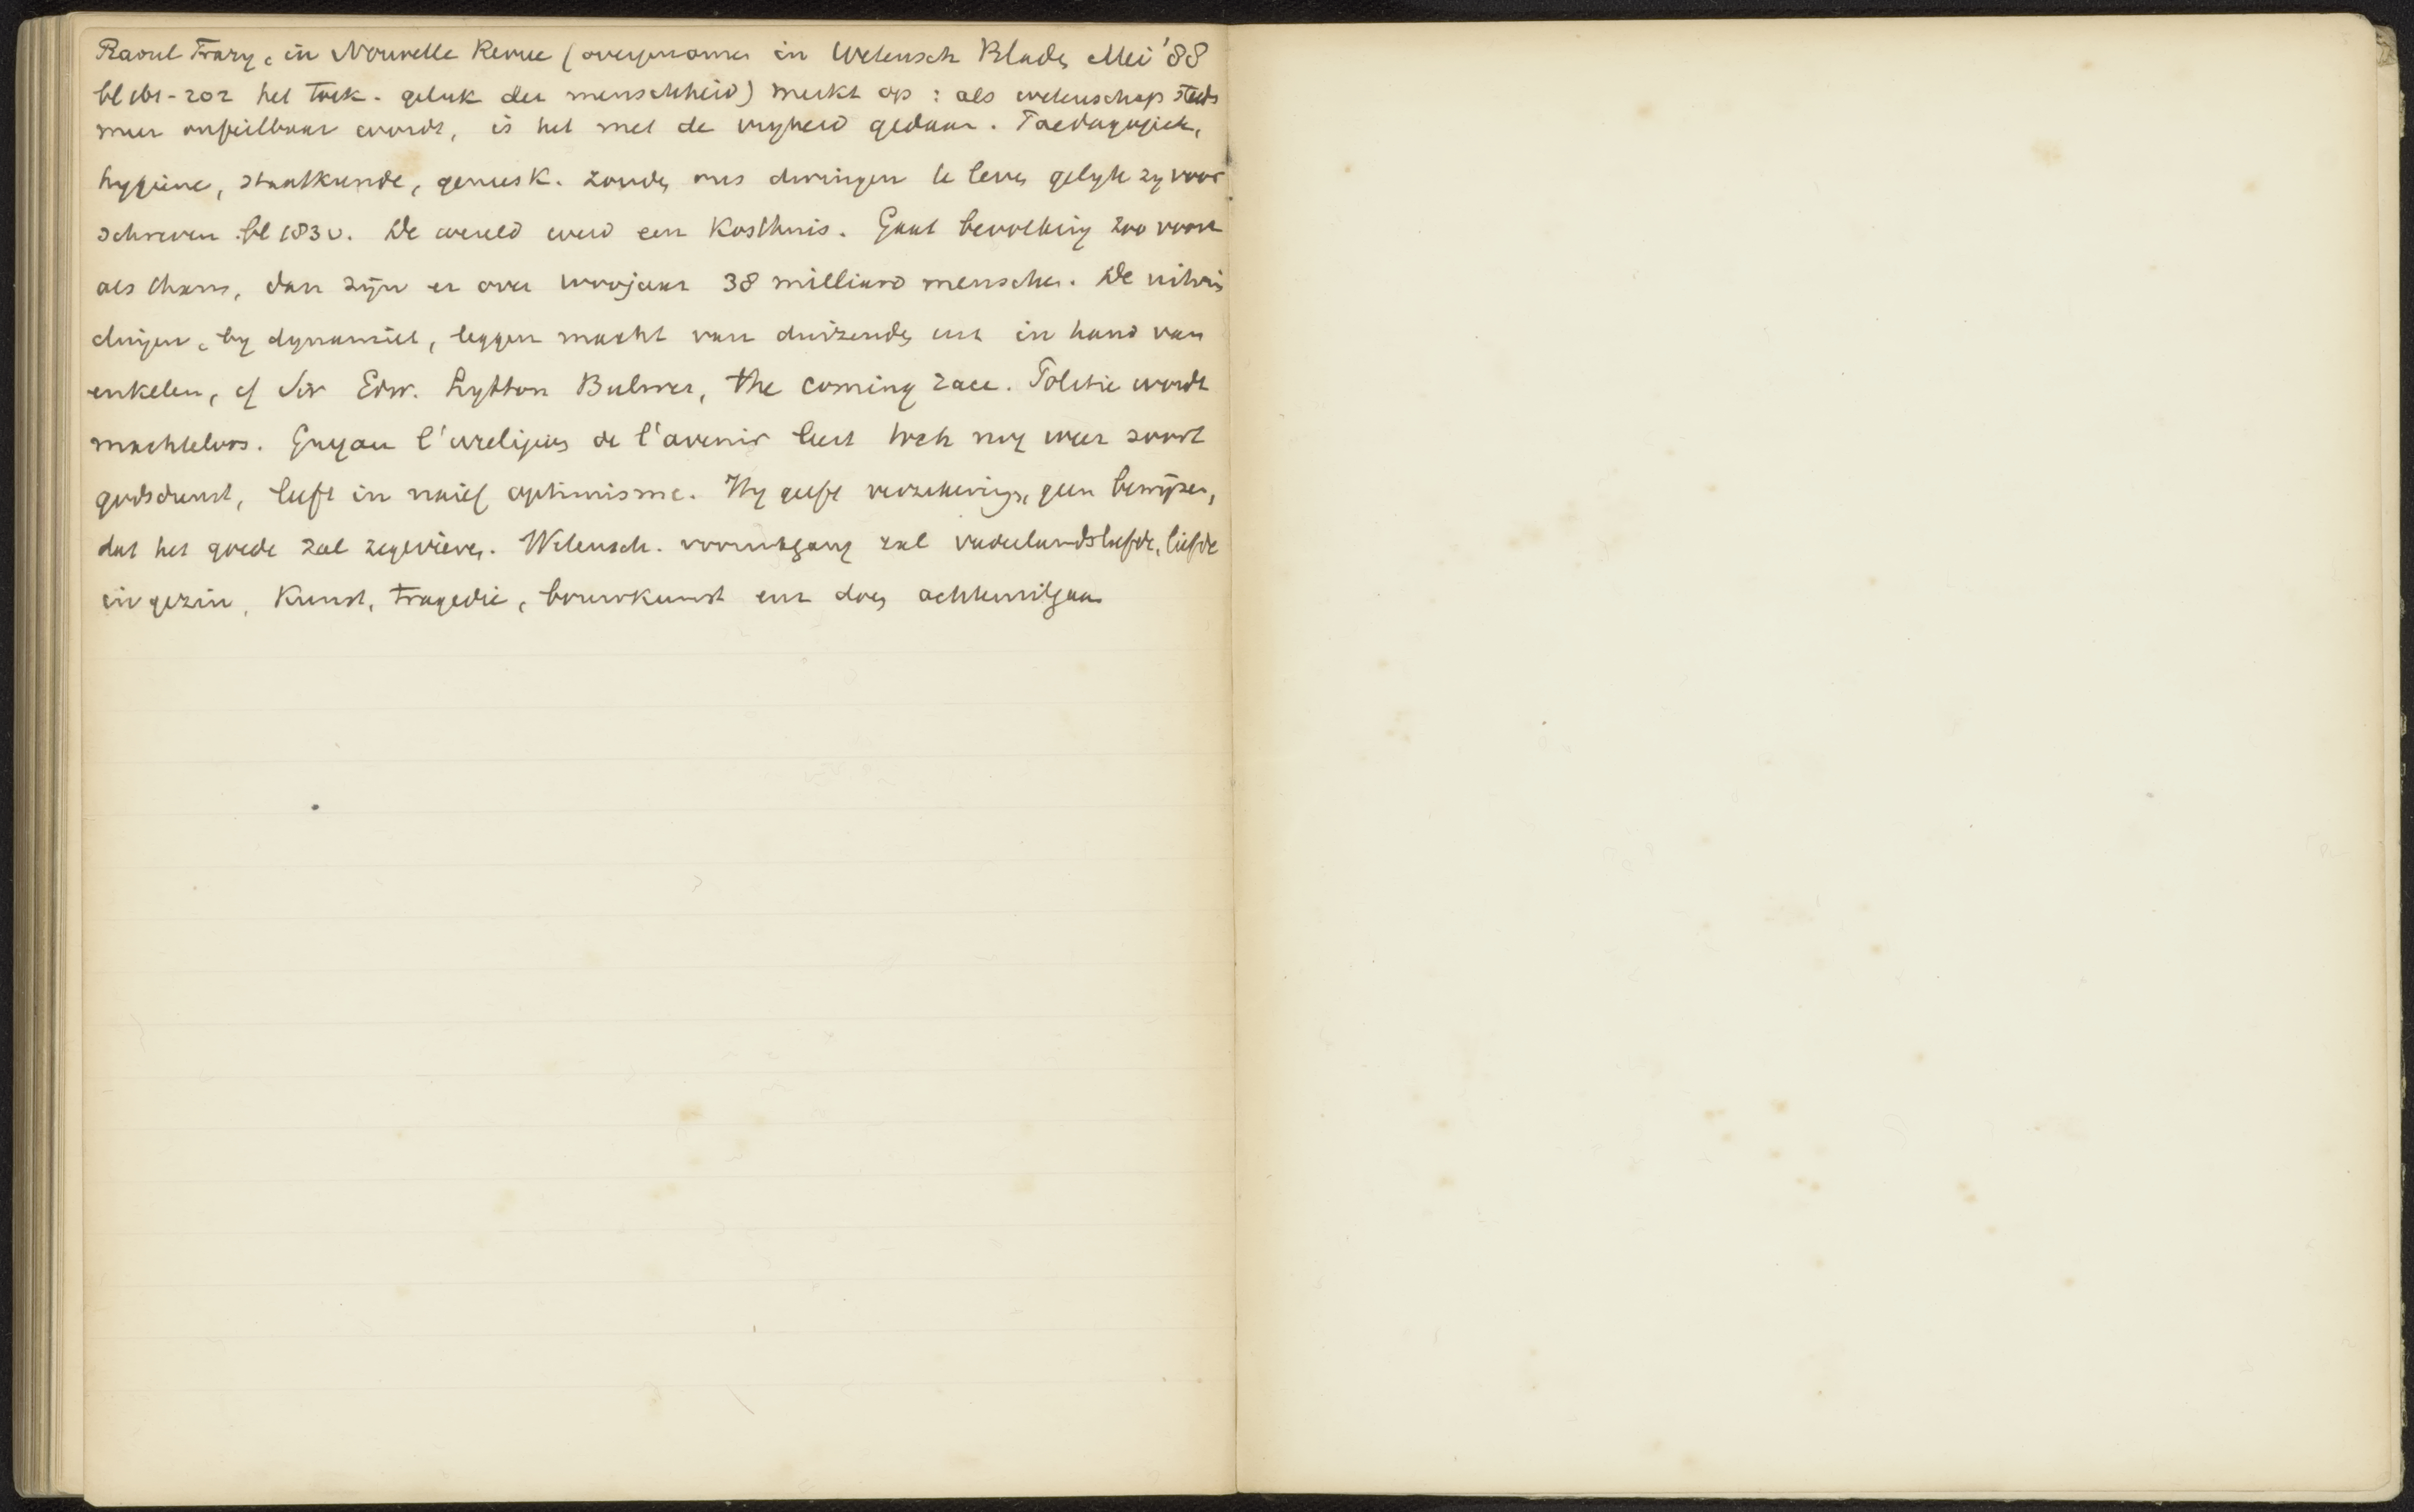 Raoul Frary, in Nouvelle Revue (overgenomen in Wetensch Bladen Mei '88
bl 161-202 het toek. geluk der menschheid) merkt op: als wetenschap steeds
meer onfeilbaar wordt, is het met de vryheid gedaan. Paedagogiek,
hygiëne, staatkunde, geneesk. zouden ons dwingen te leven gelyk zy voor
schreven bl 183 v. De wereld werd een kosthuis. Gaat bevolking zoo voort
als thans, dan zijn er over jaar 38 milliard menschen. De uitvin
dingen, by dynamiet, leggen macht van duizenden in hand van
enkelen, cf Sir Edw. Lytton Bulwer, the coming race. Politie wordt
machteloos. Guyau l'irreligion de l'avenir leert toch nog weer soort
godsdienst, leeft in naief optimisme. Hy geeft verzekeringen, geen bewijzen,
dat het goede zal zegevieren. Wetensch. vooruitgang zal vaderlandsliefde, liefde
in gezin, kunst, tragedie, bouwkunst enz doen achteruitgaan